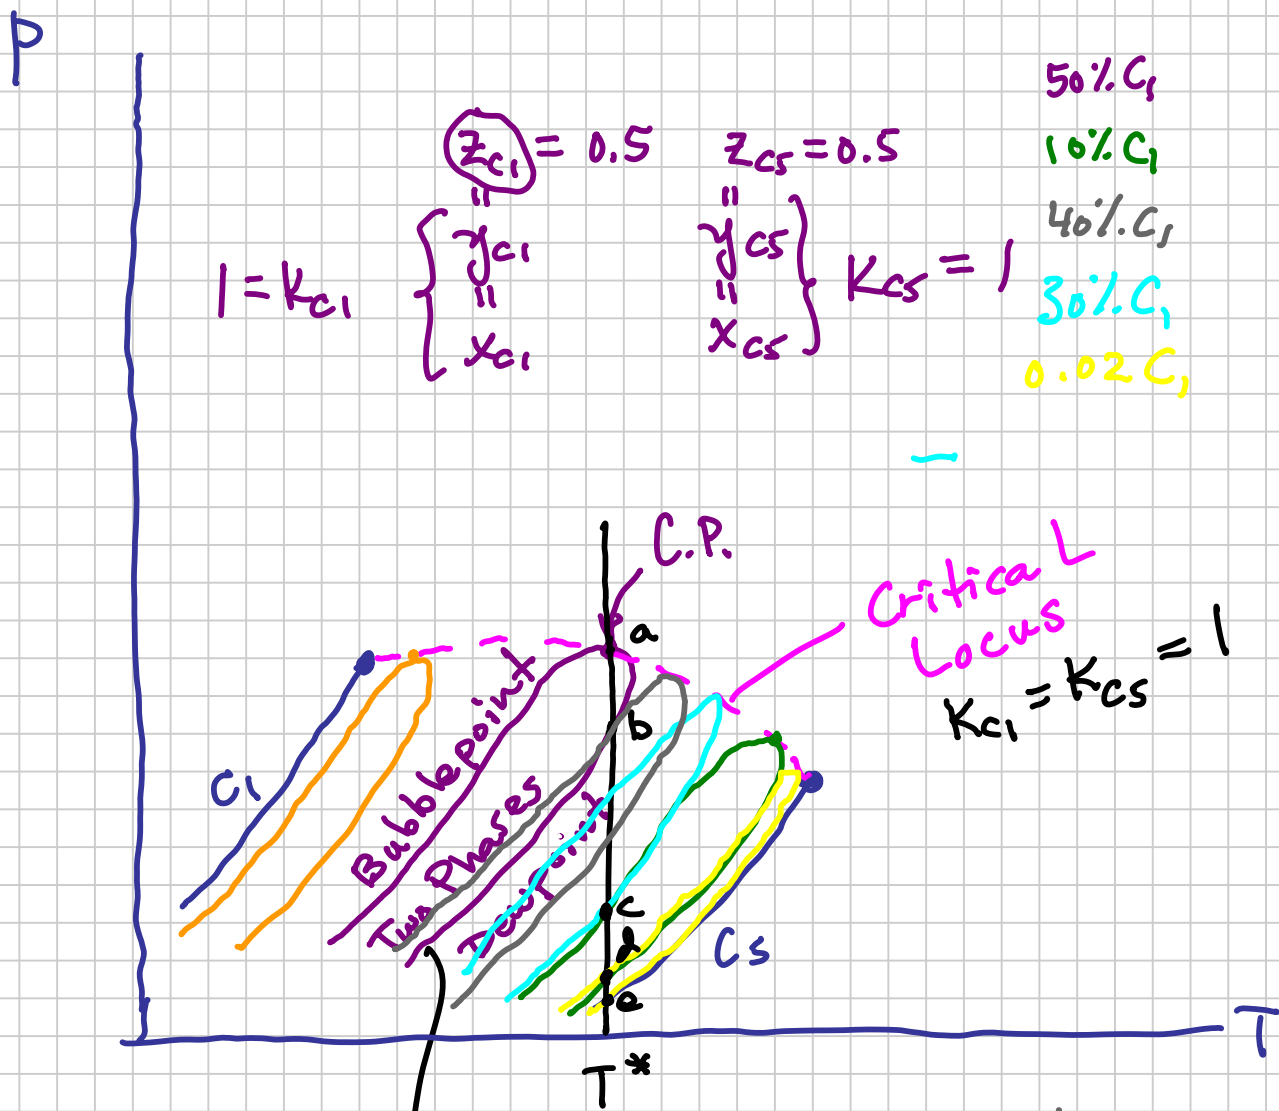 P
50% C1
10% C1
40% C1
30% C1
0.02 C1
zC1 = 0.5 zC5 = 0.5
" "
1 = kC1 { yC1 yC5 } KC5 = 1
" "
xC1 xC5
C.P.
Critical
Locus
KC1 = KC5 = 1
a
b
c
d
e
C1
Bubble point
Two Phases
Dew Point
C5
T*
T